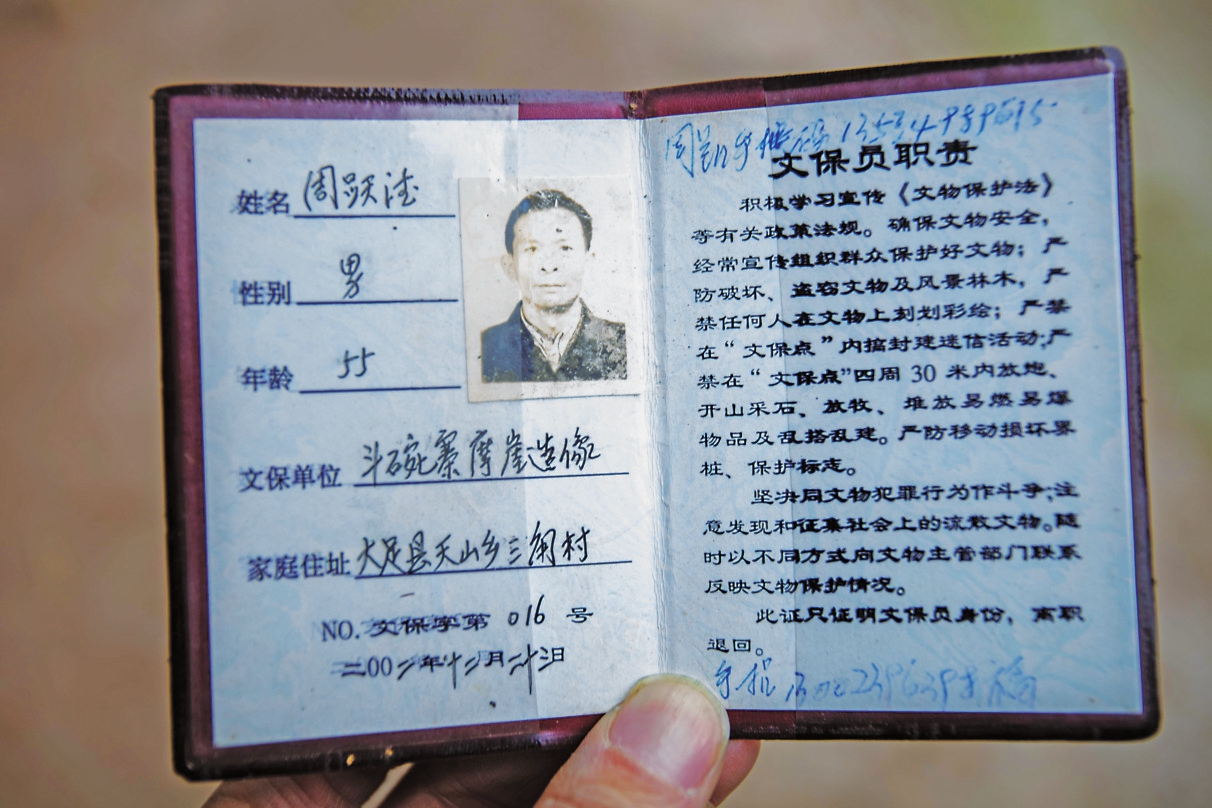 姓名 周显德
性别 男
年龄 55
文保单位 斗碗寨摩崖造像
家庭住址 大足县天山乡三角村
NO. 文保字第 016 号
二00二年十二月二十三日
文保员职责
积极学习宣传《文物保护法》
等有关政策法规。确保文物安全，
经常宣传组织群众保护好文物；严
防破坏、盗窃文物及风景林木，严
禁任何人在文物上刻划彩绘；严禁
在“文保点”内搞封建迷信活动;严
禁在“文保点”四周 30 米内放炮、
开山采石、放牧、堆放易燃易爆
物品及乱搭乱建。严防移动损坏界
桩、保护标志。
坚决同文物犯罪行为作斗争;注
意发现和征集社会上的流散文物。随
时以不同方式向文物主管部门联系
反映文物保护情况。
此证只证明文保员身份，离职
退回。